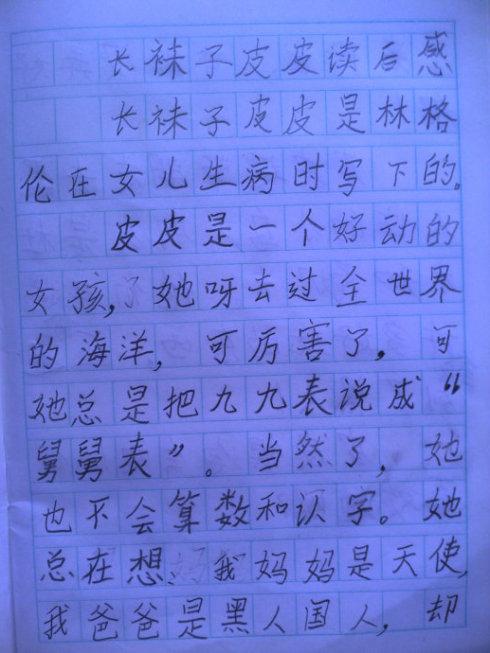 长袜子皮皮读后感
长袜子皮皮是林格
伦在女儿生病时写下的。
皮皮是一个好动的
女孩,她呀去过全世界
的海洋,可厉害了,可
她总是把九九表说成“
舅舅表”。当然了,她
也不会算数和认字。她
总在想:我妈妈是天使,
我爸爸是黑人国人,却